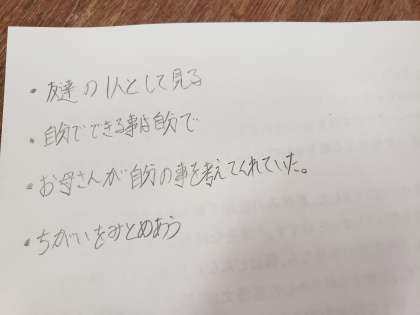 ・友達の1人として見る
・自分でできる事は自分で
・お母さんが自分の事を考えてくれていた。
・ちがいをみとめあう